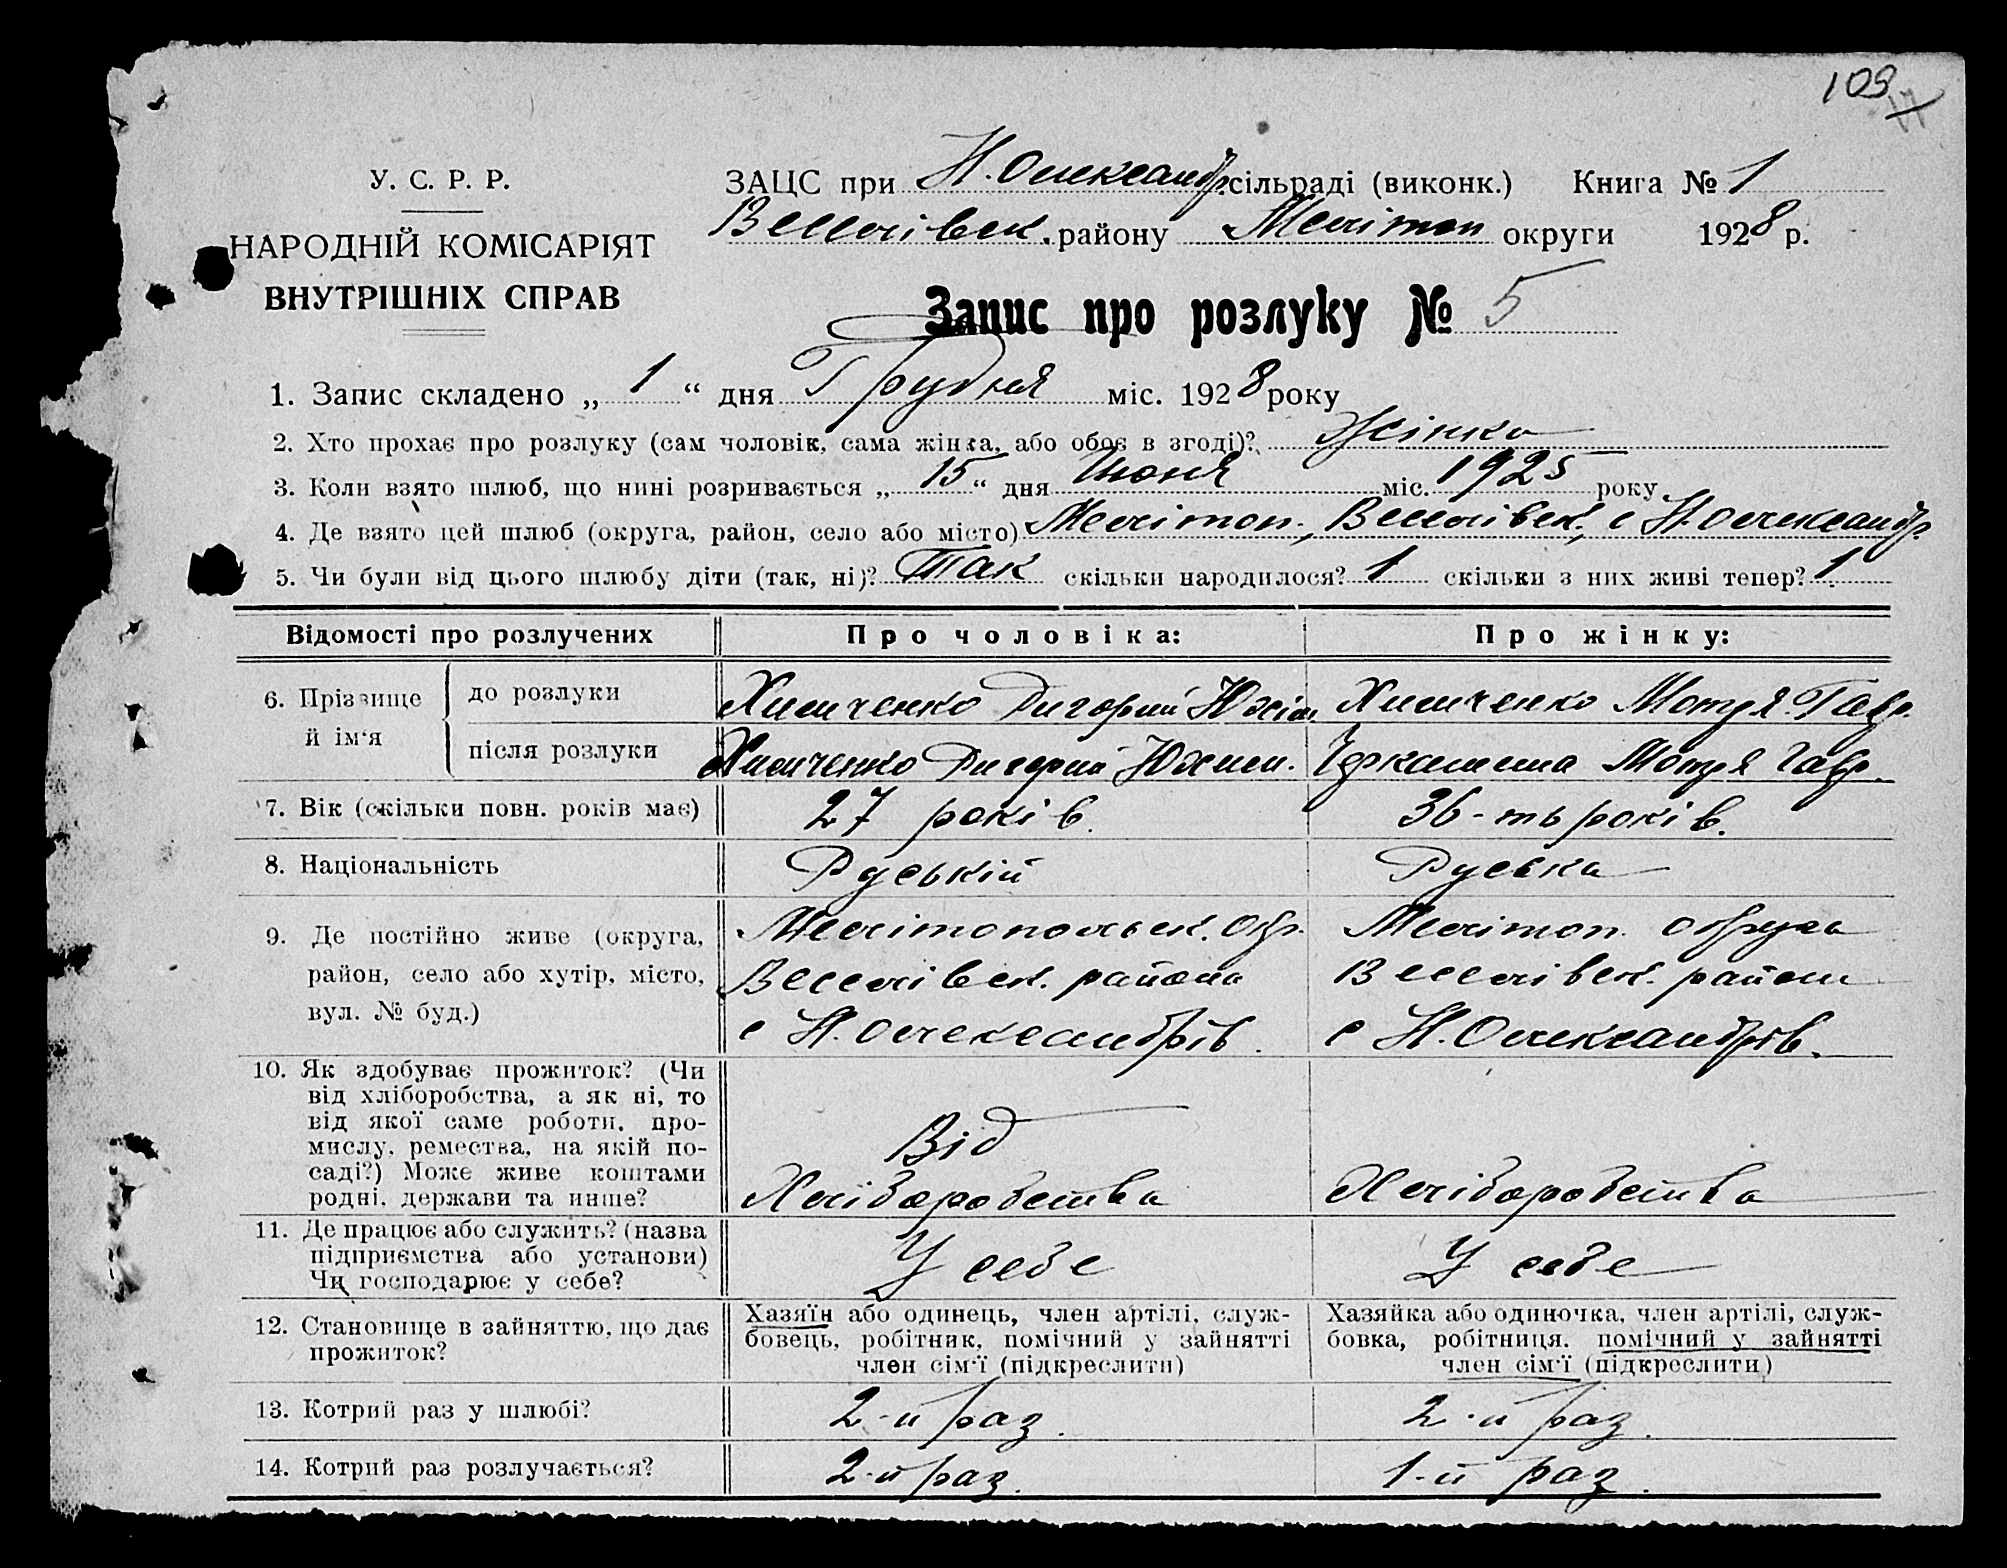 109
У. С. Р. Р.
НАРОДНІЙ КОМІСАРІЯТ
ВНУТРІШНІХ СПРАВ
ЗАЦС при Н. Олександр. сільраді (виконк.) Книга № 1
Веселівск. району Мелітоп округи 1928 р.
Запис про розлуку № 5
1. Запис складено „ 1 “ дня Грудня міс. 1928 року
2. Хто прохає про розлуку (сам чоловік, сама жінка, або обоє в згоді)? Жінка
3. Коли взято шлюб, що нині розривається „ 15 “ дня Июня міс. 1925 року
4. Де взято цей шлюб (округа, район, село або місто) Мелітоп., Веселівск., с Н. Олександр.
5. Чи були від цього шлюбу діти (так, ні)? Так скільки народилося? 1 скільки з них живі тепер? 1
Відомості про розлучених Про чоловіка: Про жінку:
6. Прізвище й ім'я
до розлуки Химченко Григорий Юхім. Химченко Мотря Гавр.
після розлуки Химченко Григорий Юхим. Мотря Гавр.
7. Вік (скільки повн. років має) 27 років. 36-ть років.
8. Національність Руський Руська
9. Де постійно живе (округа, Мелітопольск. окр. Мелітоп. округа
район, село або хутір, місто, Веселівск. района Веселівск. района
вул. № буд.) с Н. Олександрів. с Н. Олександрів.
10. Як здобуває прожиток? (Чи
від хліборобства, а як ні, то
від якої саме роботи, про-
мислу, ремества, на якій по- Від
саді?) Може живе коштами
родні, держави та инше? Хліборобства Хліборобства
11. Де працює або служить? (назва
підприємства або установи) У себе У себе
Чи господарює у себе?
12. Становище в зайняттю, що дає
прожиток?
Хазяїн або одинець, член артілі, служ-
бовець, робітник, помічний у зайнятті
член сім'ї (підкреслити)
Хазяйка або одиночка, член артілі, служ-
бовка, робітниця, помічний у зайнятті
член сім'ї (підкреслити)
13. Котрий раз у шлюбі? 2-й раз. 2-й раз.
14. Котрий раз розлучається? 2-й раз. 1-й раз.